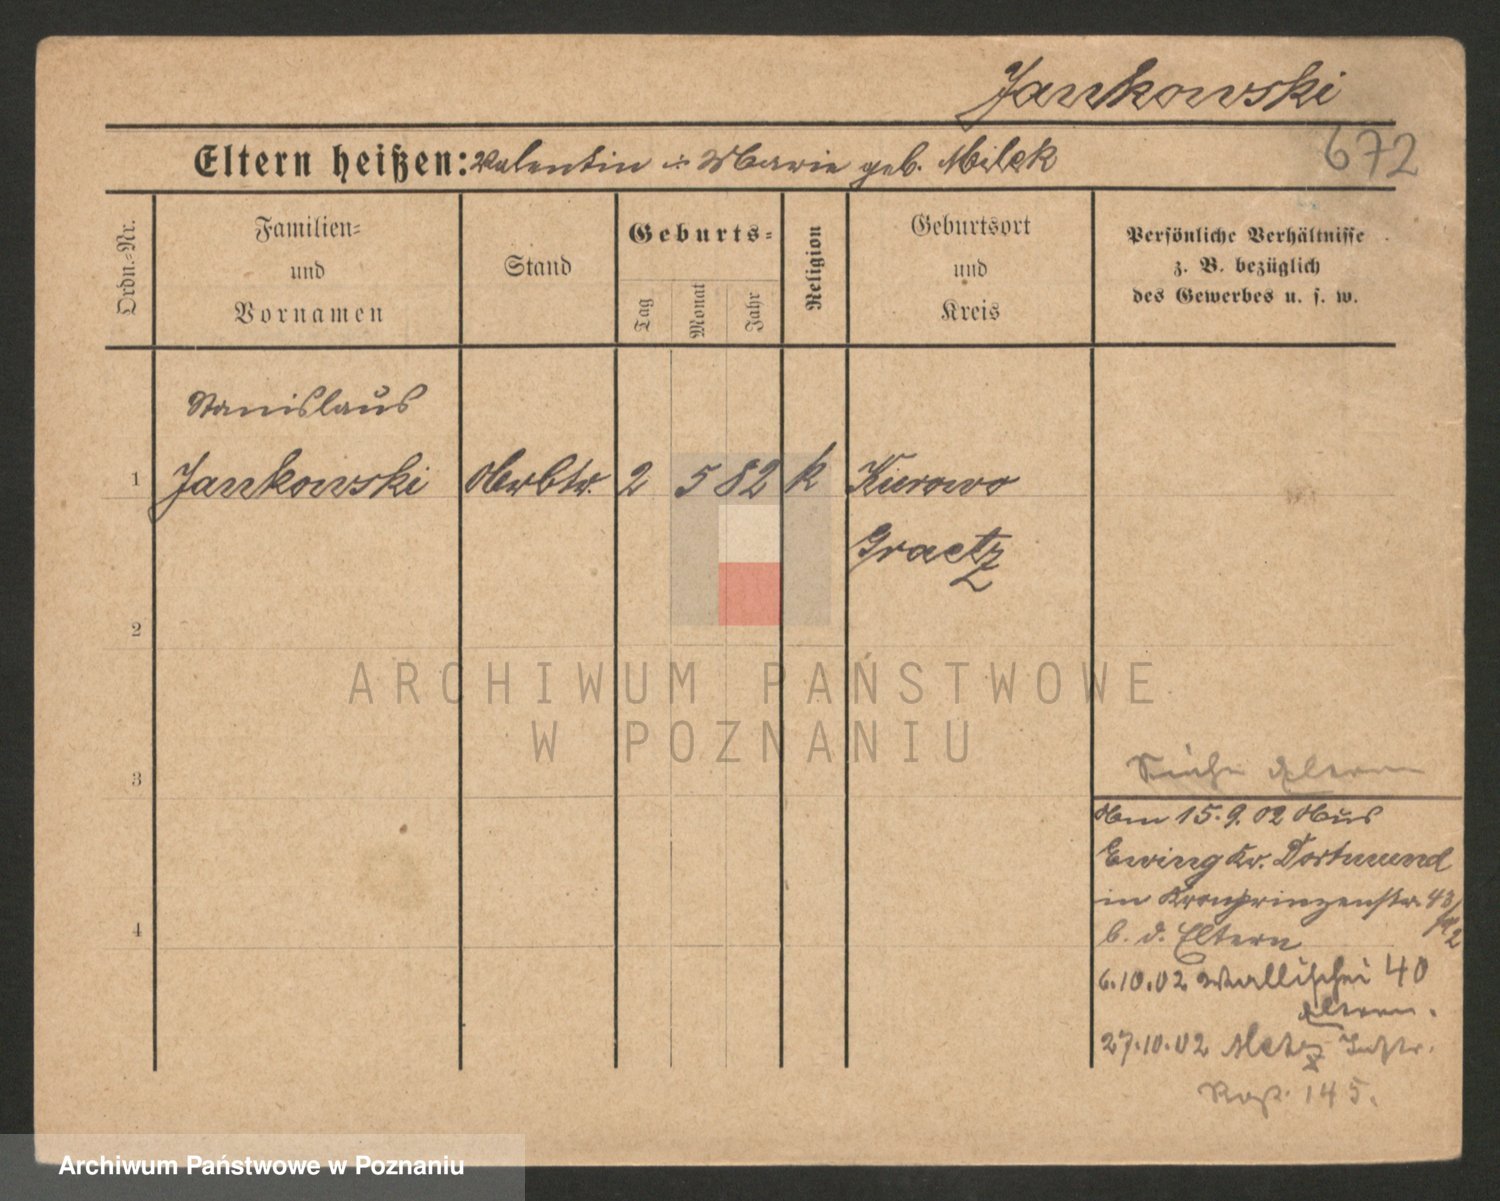 Jankowski
672
Eltern heißen: Valentin u. Marie geb. Milck
Ordn.-Nr.
Familien-
und
Vornamen
Stand
Geburts-
Tag
Monat
Jahr
Religion
Geburtsort
und
Kreis
Persönliche Verhältnisse
z. B. bezüglich
des Gewerbes u. s. w.
Stanislaus
1 Jankowski Arbtr. 2 5 82 k Kurowo
Graetz
2
ARCHIWUM PAŃSTWOWE
W POZNANIU
3
Siehe Eltern
Am 15.9.02 Aus
Ewing Kr. Dortmund
in Kronprinzenstr. 43
4
b. d. Eltern
6.10.02 Wallischei 40
Eltern.
27.10.02 Metz
145.
Archiwum Państwowe w Poznaniu